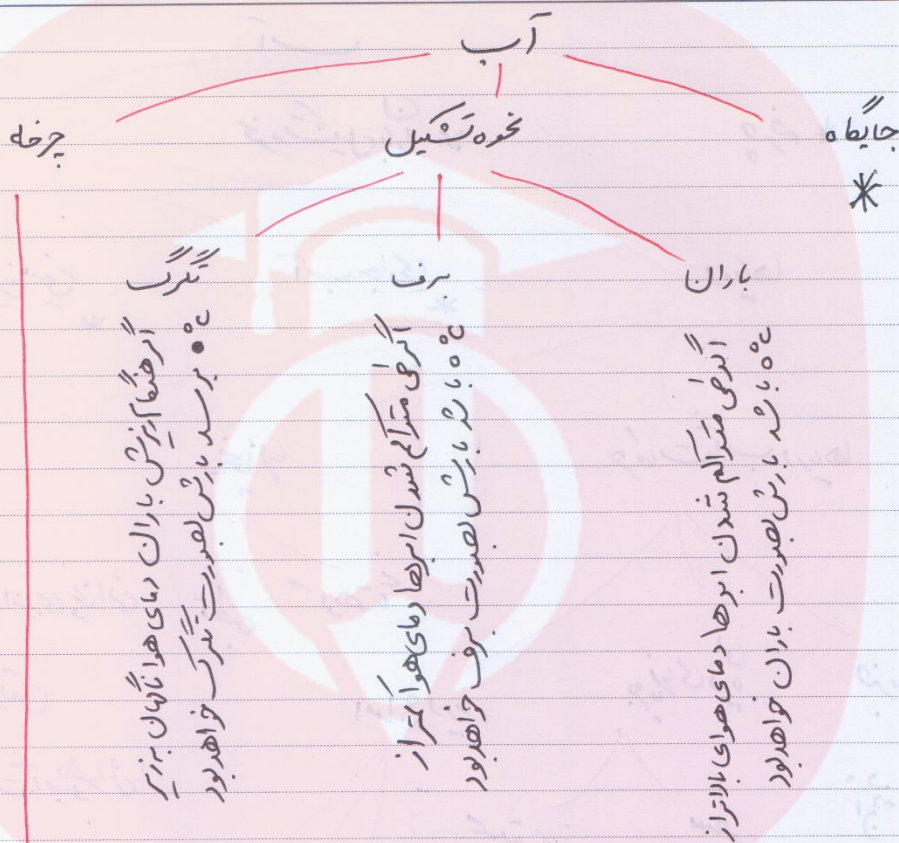 آب
جایگاه
نحوه تشکیل
چرخه
*
باران
برف
تگرگ
اگر طی متراکم شدن ابرها دمای هوای بالاتر از
۰°c باشد بارش بصورت باران خواهد بود
اگر طی متراکم شدن ابرها دمای هوا کمتر از
۰°c باشد بارش بصورت برف خواهد بود
اگر هنگام ریزش باران دمای هوا ناگهان به زیر
۰°c برسد بارش بصورت تگرگ خواهد بود